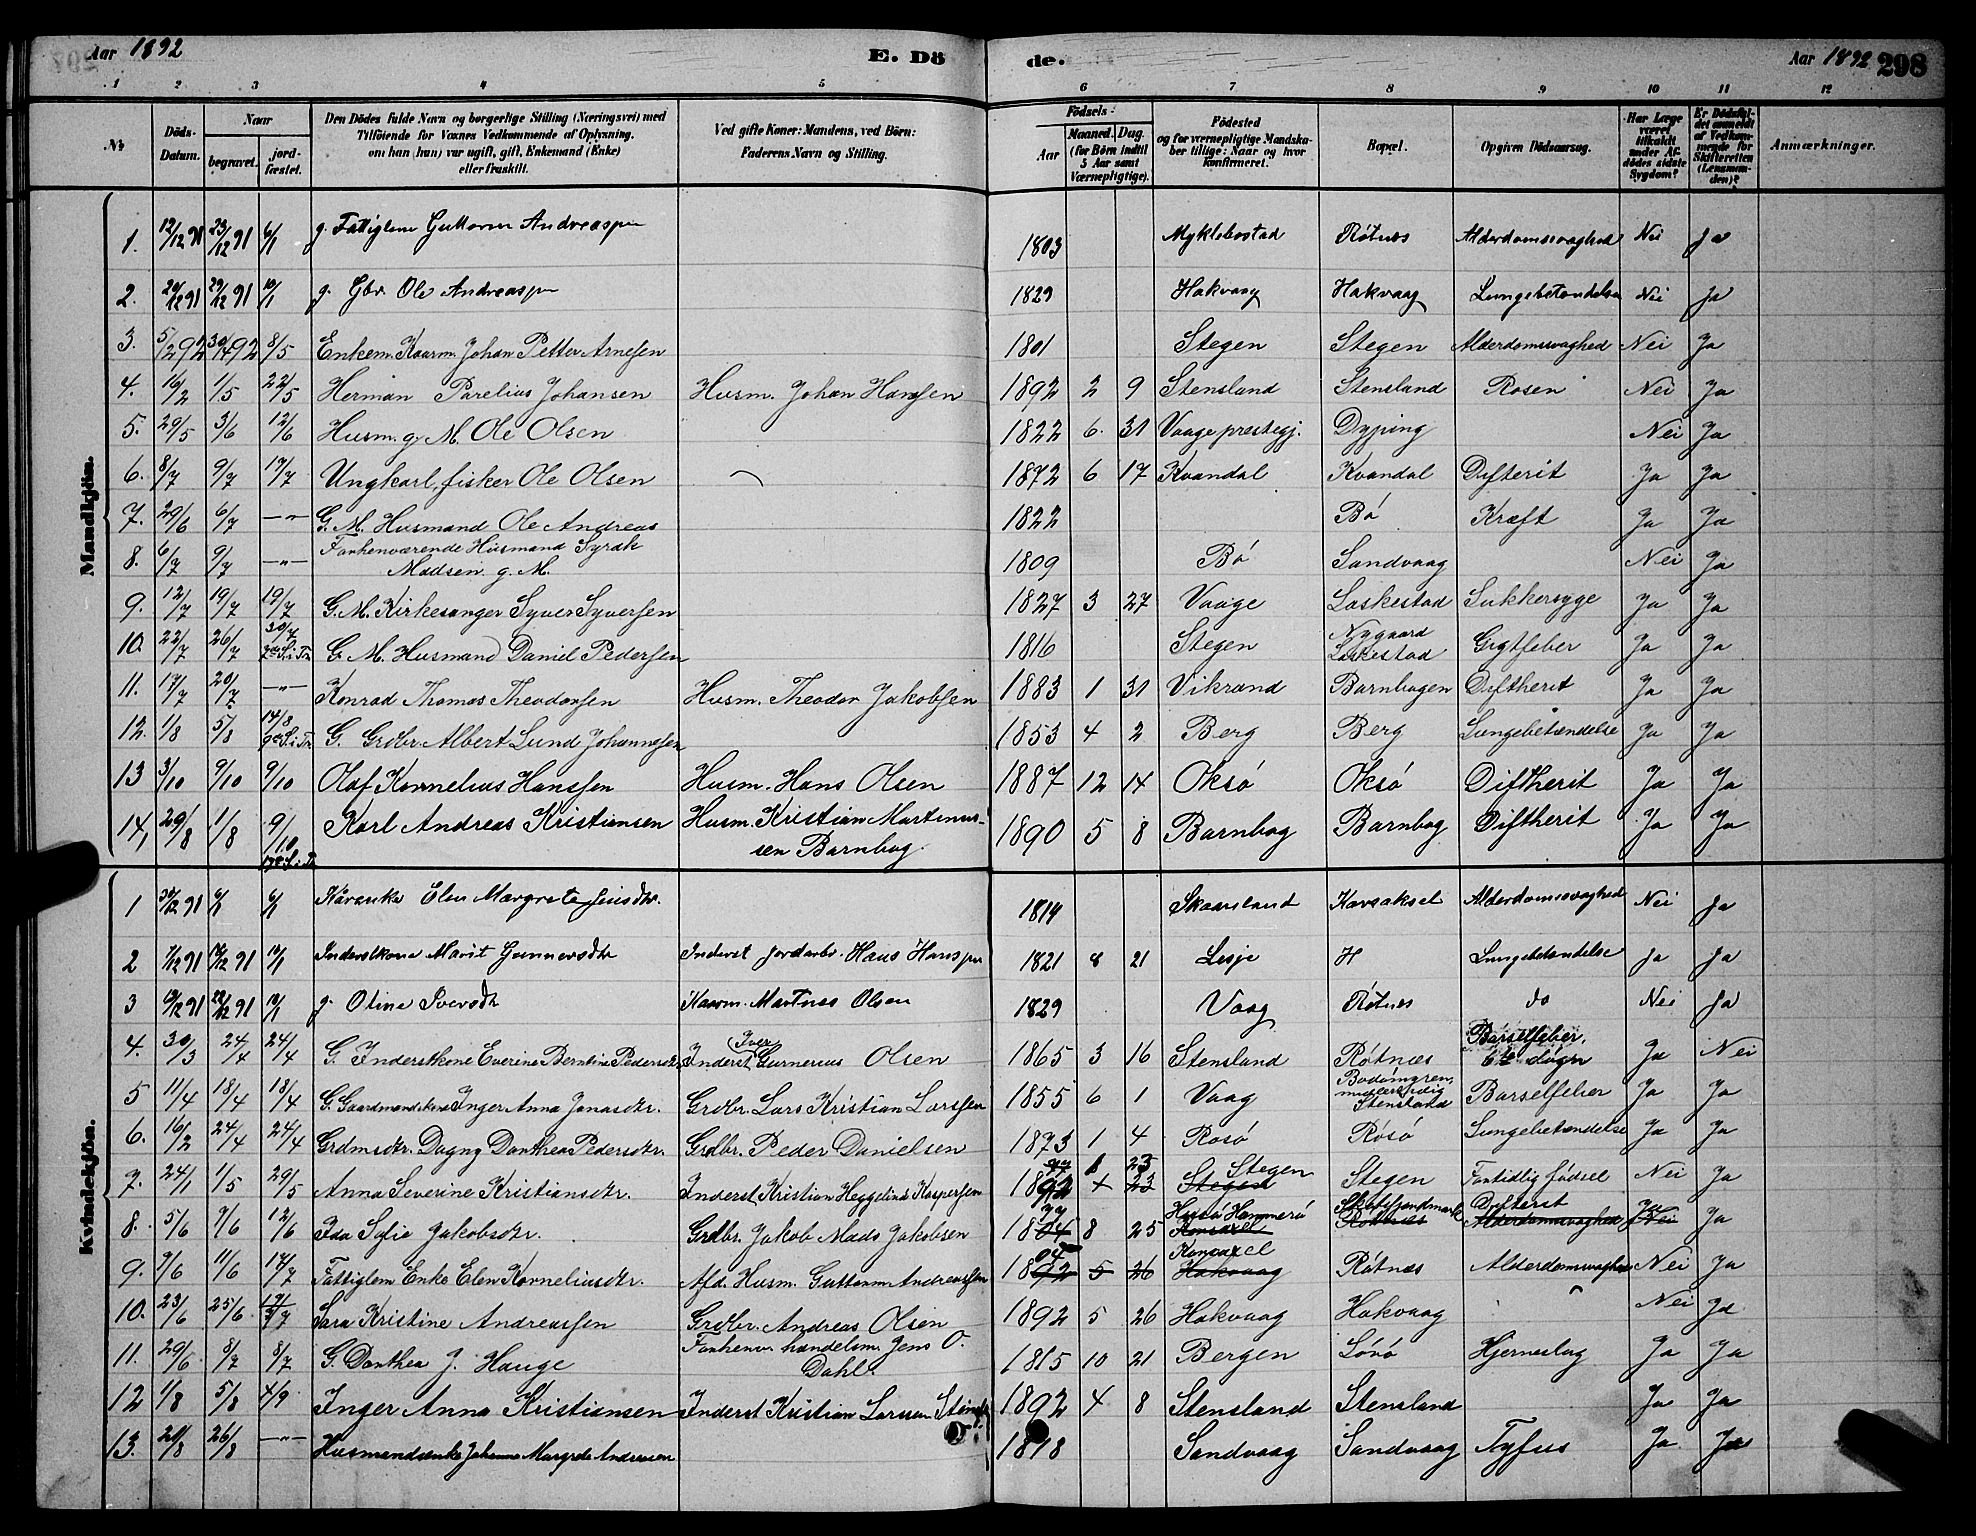 Aar 1892 E. Dö de. Aar 1892 298
1 2 3 4 5 6 7 8 9 10 11 12
№ Döds-Datum. Naar begravet. jordfæstet. Den Dödes fulde Navn og borgerlige Stilling (Næringsvei) med Tilföiende for Voxnes Vedkommende af Oplysning, om han (hun) var ugift, gift, Enkemand (Enke) eller fraskilt. Ved gifte Koner: Mandens, ved Börn: Faderens Navn og Stilling. Födsels- Aar Maaned. Dag. (for Börn indtil 5 Aar samt Værnepligtige). Födested og for værnepligtige Mandskaber tillige: Naar og hvor konfirmeret. Bopæl. Opgiven Dödsaarsag. Har Læge været tilkaldt under Afdödes sidste Sygdom? Er Dödsfaldet anmeldt af Vedkommende for Skifteretten (Lensmanden)? Anmærkninger.
Mandkjön.
1. 12/12 91 23/12 91 6/1 g. Fattiglem Guttorm Andreasen 1803 Myklebostad Røtnes Alderdomssvaghed Nei Ja
2. 20/12 91 29/12 91 10/1 g. Gbr. Ole Andreasen 1829 Hakvaag Hakvaag Lungebetændelse Nei Ja
3. 5/2 92 30/4 92 8/5 Enkem. Kaarm. Johan Petter Arnesen 1801 Stegen Stegen Alderdomsvaghed Nei Ja
4. 16/2 1/5 22/5 Herman Parelius Johansen Husm. Johan Hansen 1892 2 9 Stensland Stensland Rosen Nei Ja
5. 29/5 3/6 12/6 Husm. g. M. Ole Olsen 1822 6. 31 Vaage prestegj. Dyping Nei Ja
6. 8/7 9/7 17/7 Ungkarl, fisker Ole Olsen 1872 6 17 Kvandal Kvandal Difterit Ja Ja
7. 29/6 6/7 —"— G. M. Husmand Ole Andreas 1822 Bö Kræft Ja Ja
8. 6/7 9/7 —"— Forhenværende Husmand Syrak
Madsen g. M. 1809 Bö Sandvaag Nei Ja
9. 12/7 19/7 19/7 G. M. Kirkesanger Syver Syversen 1827 3 27 Vaage Laskestad Sukkersyge Ja Ja
10. 22/7 26/7 30/7 7de S. i Tr. G. M. Husmand Daniel Pedersen 1816 Stegen Nygaard Laskestad Gigtfeber Ja Ja
11. 17/7 20/7 —"— Konrad Thomas Theodorsen Husm. Theodor Jakobsen 1883 1 31 Vikrand Barnhogen Diftherit Ja Ja
12. 1/8 5/8 14/8 9de S. i Tr. G. Grdbr. Albert Lund Johannesen 1853 4 2 Berg Berg Lungebetændelse Ja Ja
13 3/10 9/10 9/10 Olaf Kornelius Hansen Husm. Hans Olsen 1887 12 14 Oksö Oksö Diftherit Ja Ja
14, 29/8 1/8 9/10 Karl Andreas Kristiansen Husm. Kristian Martinus-
sen Barnhog. 1890 5 8 Barnhog Barnhog Diftherit Ja Ja
Kvindekjön.
1 30/12 91 6/1 6/1 Elen Margreta Jensdtr. 1814 Skaansland Korsaksel Alderdomssvaghed Nei Ja
2 7/12 91 12 91 10/1 Inderstkone Marit Gunnersdtr Inderst Jordarbr. Hans Hansen 1821 8 21 Lesje H Lungebetændelse Ja Ja
3 12 91 22/12 91 10/1 g. Oline Iversdtr Kaarm. Martinus Olsen 1829 Vaag Røtnes do Nei Ja
4. 30/3 24/4 24/4 G. Inderstkone Everine Berntine Pedersdtr. Inderst Iver Gunnerius Olsen 1865 3 16 Stensland Røtnæs Barselfeber, 6te døgn Ja Nei
5 11/4 18/4 18/4 G. Gaardmandskone Inger Anna Jonasdtr. Grdbr. Lars Kristian Larssen 1855 6 1 Vaag Stensland Barselfeber Ja Ja
6. 16/2 24/4 24/4 Grdmsdtr. Dagny Dorthea Pedersdtr. Grdbr. Peder Danielsen 1873 1 4 Rosö Rösö Lungebetændelse Ja Ja
7. 24/1 1/5 29/5 Anna Severine Kristiansdtr. Inderst Kristian Heggelund Kaspersen 1892 1 23 Stegen Stegen Fortidlig födsel Nei Ja
8. 5/6 7/6 12/6 Ida Sofie Jakobsdtr. Grdbr. Jakob Mads Jakobsen 1877 8 25 Husö Hammerö Difterit Ja Ja
9. 7/6 11/6 17/7 Fattiglem Enke Elen Korneliusdtr. Afd. Husm. Guttorm Andreassen 1804 5 26 Korsaxel Røtnæs Alderdomsvaghed Nei Ja
10. 23/6 25/6 17/7 Sara Kristine Andreassen Grdbr. Andreas Olsen 1892 5 26 Hakvaag Hakvaag Nei Ja
11. 29/6 8/7 8/7 G. Dorthea J. Hauge Forhenv. handelsm. Jens O.
Dahl. 1815 10 21 Bergen Lövö Hjerneslag Ja Ja
12 1/8 5/8 4/9 Inger Anna Kristiansen Inderst Kristian Larssen 1892 4 8 Stensland Stensland Ja Ja
13. 20/8 26/8 —"— Husmandsenke Johanna Margrete Andersen 1818 Sandvaag Sandvaag Tyfus Ja Ja